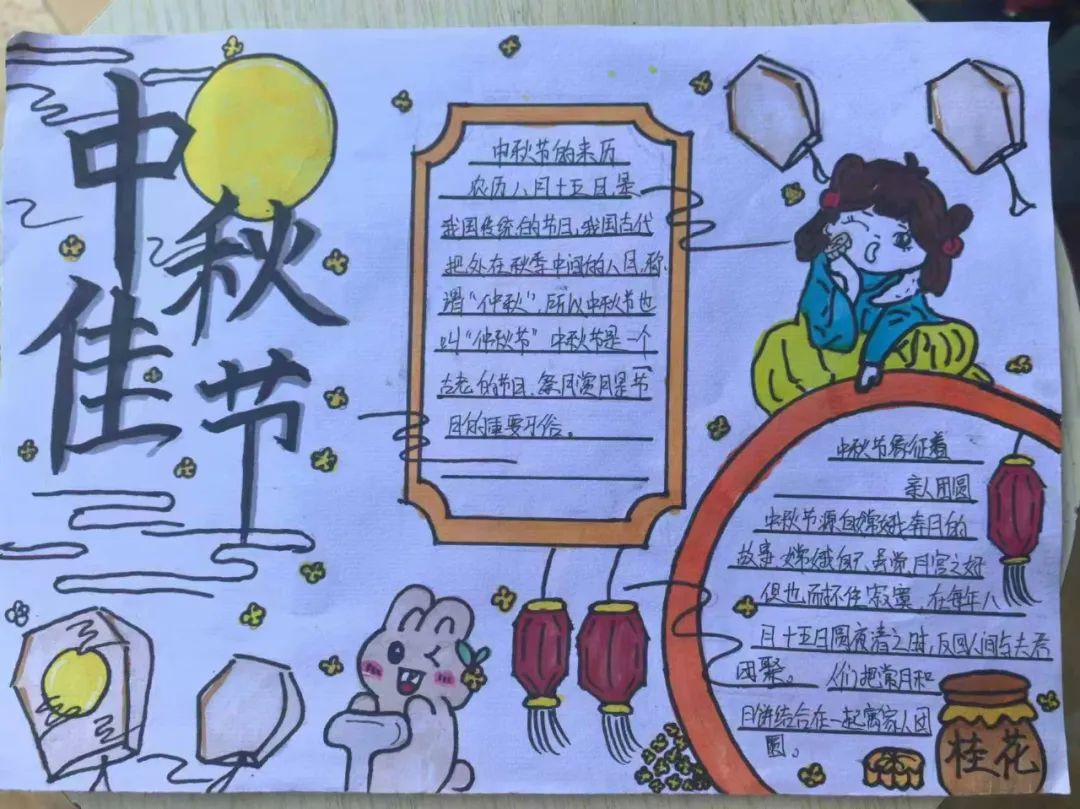 中秋
佳节
中秋节的来历
农历八月十五日,是
我国传统的节日,我国古代
把处在秋季中间的八月,称
谓“仲秋”,所以中秋节也
叫“仲秋节”中秋节是一个
古老的节日,祭月赏月是节
日的重要习俗。
中秋节象征着
亲人团圆
中秋节源自嫦娥奔月的
故事,嫦娥 月宫之好
但也 寂寞,在每年八
月十五日圆夜清之时,反回人间与夫君
团聚。 人们把赏月和
月饼结合在一起寓家人团
圆。
桂花